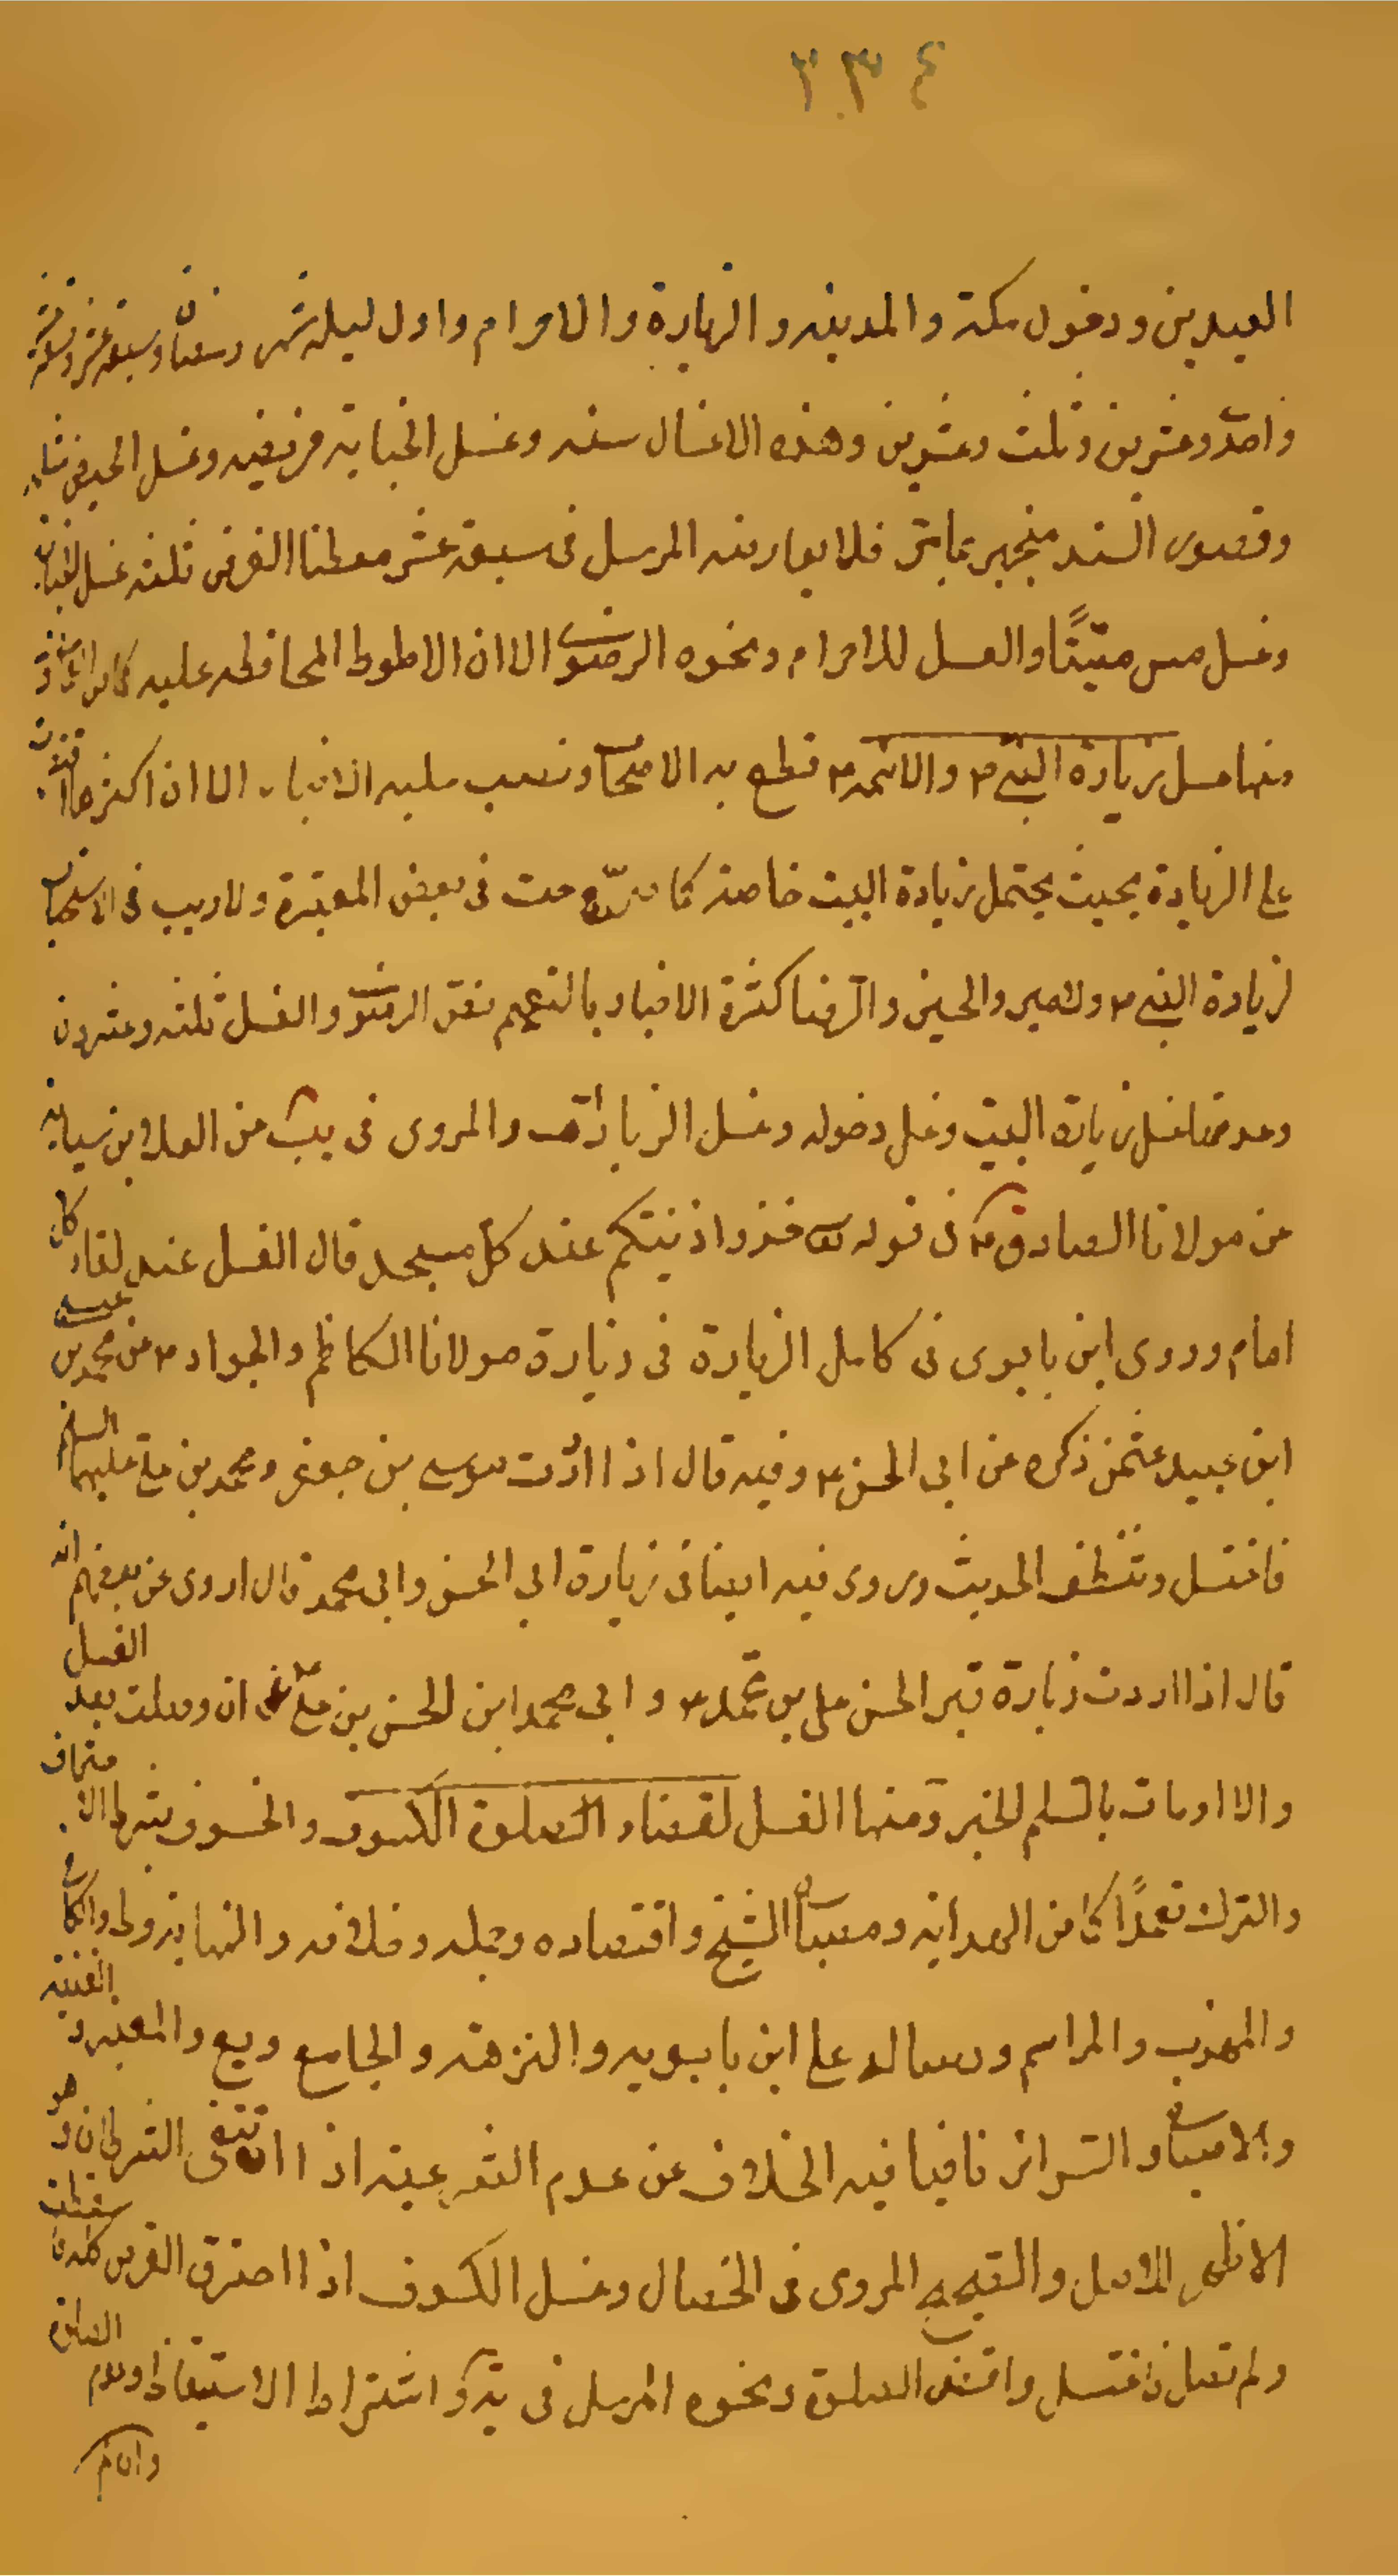 ٣٣٤
العيدين ودخول مكة والمدينه والزيارة والاحرام واول ليله شهر رمضان وسبعة عشر وتسعة عشر
واحدى وعشرين وثلث وعشرين وهذه الاغسال سنه وغسل الجنابه فريضه وغسل الحيض مثله
وقصور السند منجبر بما مر فلا يعارضه المرسل فى سبعة عشر موطنا الفرض ثلثه غسل الجنابه
وغسل مس ميتًا والغسل للاحرام ونحوه الرضوى الا ان الاحوط المحافظه عليه
منها غسل زيارة النبى والائمه قطع به الاصحاب ونصت عليه الاخبار الا ان اكثرها
على الزيارة بحيث يحتمل زيارة البيت خاصه كما صرحت فى بعض المعتبرة ولا ريب فى الاستحباب
لزيارة النبى ولامير والحسين والرضا كثرة الاخبار بالتعميم نفى الرضوى والغسل ثلثه وعشرون
وعد منها غسل زيارة البيت وغسل دخوله وغسل الزيارات والمروى فى يب عن العلا بن سيابه
عن مولانا الصادق فى قوله خذوا زينتكم عند كل مسجد قال الغسل عند لقاء كل
امام وروى ابن بابوى فى كامل الزيارة فى زيارة مولانا الكاظم والجواد عن محمد بن عيسى
ابن عبيد عمن ذكره عن ابى الحسن وفيه قال اذا اردت موسى بن جعفر ومحمد بن على عليهما السلم
فاغتسل وتنظف الحديث وروى فيه ايضا فى زيارة ابى الحسن وابى محمد قال اروى عن بعضهم انه
قال اذا اردت زيارة قبر الحسن على بن محمد و ابى محمد ابن الحسن بن على ان وصلت بعد الغسل
والا اومات بالسلم الخبر ومنها الغسل لقضاء الصلوة الكسوف والخسوف بشرط الا
والترك تعمدًا كما فى الهدايه ومصباح الشيخ واقتصاده وجمله وخلافه والنهايه وط والكافى
والمهذب والمراسم ورسالة على ابن بابويه والنزهة والجامع ويع والمعتبر والغنيه
والاصباح والسرائر نافيا فيه الخلاف عن عدم الشرعيه اذا انتفى الشرطان وهو
الاظهر للاصل والصحيح المروى فى الخصال وغسل الكسوف اذا احترق القرص كله
ولم تصل فاغتسل واقض الصلوة ونحوه المرسل فى يه واشتراط الاستيقاظ وعدم الصلوة
وان لم